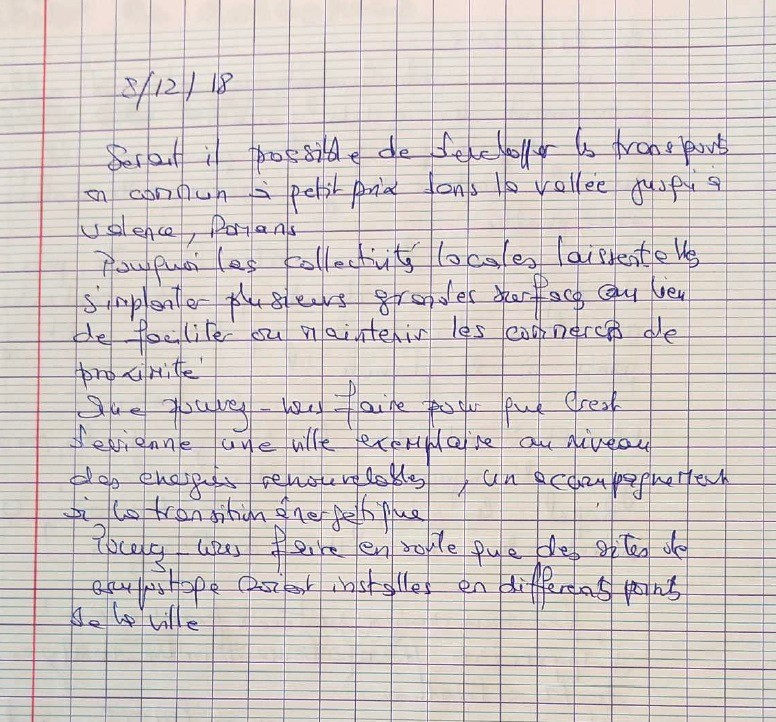 8/12/18
Serait il possible de developper les transports
en commun à petit prix dans la vallée jusqu'à
valence, Romans
Pourquoi les collectivités locales laissent elles
s'implanter plusieurs grandes surfaces au lieu
de faciliter ou maintenir les commerces de
proximité
Que pouvez-vous faire pour que Crest
devienne une ville exemplaire au niveau
des energies renouvelables, un accompagnement
à la transition énergétique
Pouvez-vous faire en route que des sites de
compostage soient installes en différents points
de la ville